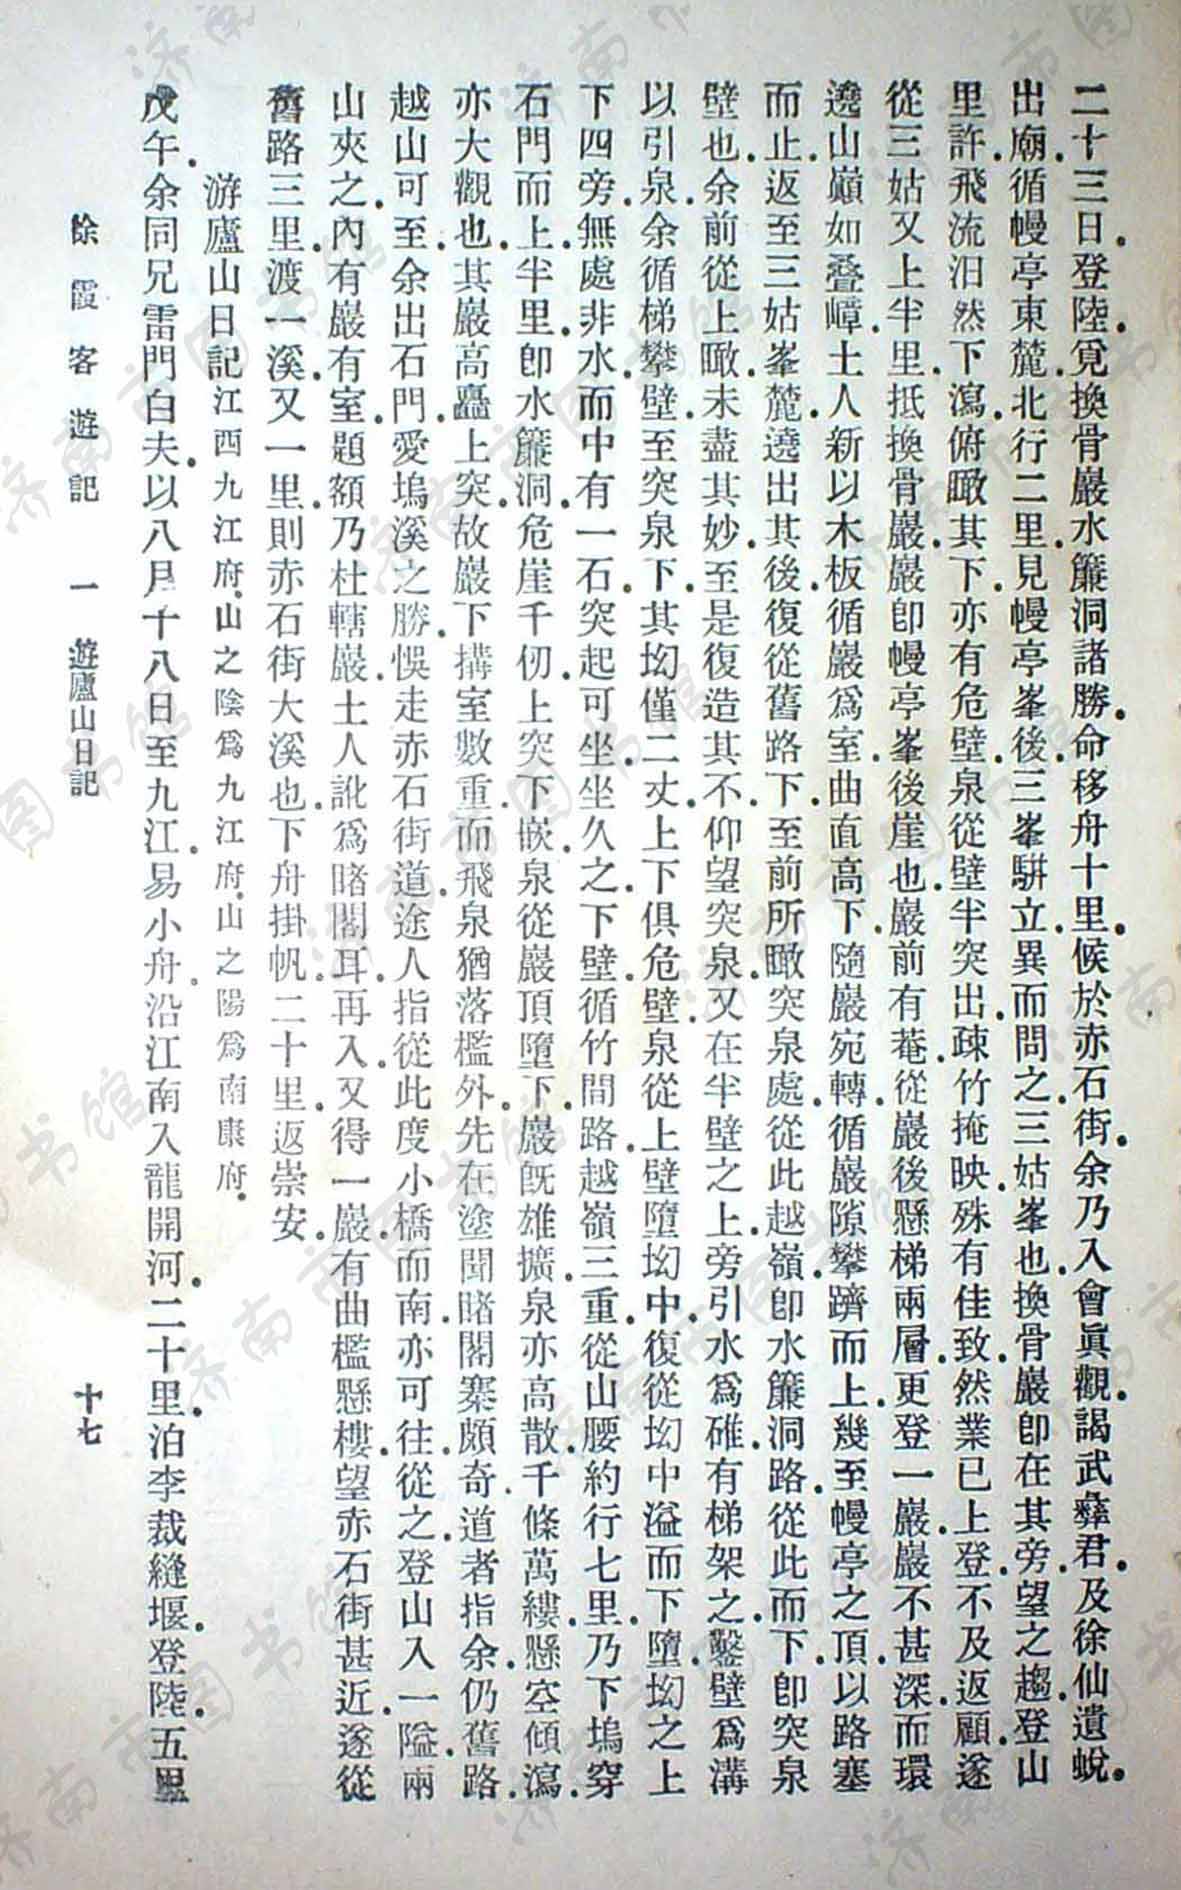 二十三日.登陸.覓換骨巖水簾洞諸勝.命移舟十里.候於赤石街.余乃入會眞觀.謁武彝君.及徐仙遺蛻.
出廟.循幔亭東麓.北行二里.見幔亭峯後.三峯駢立.異而問之.三姑峯也.換骨巖卽在其旁.望之趨.登山
里許.飛流汨然下瀉.俯瞰其下.亦有危壁.泉從壁半突出.疎竹掩映.殊有佳致.然業已上登.不及返顧.遂
從三姑又上半里.抵換骨巖.巖卽幔亭峯後崖也.巖前有菴.從巖後懸梯兩層.更登一巖.巖不甚深.而環
遶山巔如疊嶂.土人新以木板循巖爲室.曲直高下.隨巖宛轉.循巖隙攀躋而上.幾至幔亭之頂.以路塞
而止.返至三姑峯麓.遶出其後.復從舊路下.至前所瞰突泉處.從此越嶺.卽水簾洞路.從此而下.卽突泉
壁也.余前從上瞰.未盡其妙.至是復造其不.仰望突泉.又在半壁之上.旁引水爲碓.有梯架之.鑿壁爲溝
以引泉.余循梯攀壁.至突泉下.其坳僅二丈.上下俱危壁.泉從上壁墮坳中.復從坳中溢而下墮.坳之上
下四旁.無處非水.而中有一石突起可坐.坐久之.下壁.循竹間路.越嶺三重.從山腰約行七里.乃下塢.穿
石門而上.半里.卽水簾洞.危崖千仞.上突下嵌.泉從巖頂墮下.巖旣雄擴.泉亦高散.千條萬縷.懸空傾瀉.
亦大觀也.其巖高矗上突.故巖下搆室數重.而飛泉猶落檻外.先在塗聞睹閣寨頗奇.道者指余仍舊路.
越山可至.余出石門.愛塢溪之勝.悞走赤石街道.途人指從此度小橋而南.亦可往.從之.登山入一隘.兩
山夾之.內有巖有室.題額乃杜轄巖.土人訛爲睹閣耳.再入.又得一巖.有曲檻懸樓.望赤石街甚近.遂從
舊路.三里.渡一溪.又一里.則赤石街大溪也.下舟.掛帆.二十里.返崇安.
游廬山日記江西九江府.山之陰爲九江府.山之陽爲南康府.
戊午.余同兄雷門白夫.以八月十八日至九江.易小舟.沿江南入龍開河.二十里.泊李裁縫堰.登陸.五里
徐霞客遊記　一　遊廬山日記　十七